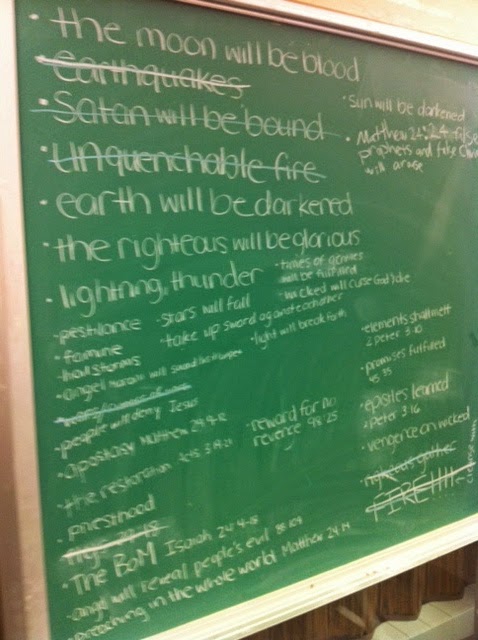 • the moon will be blood
earthquakes
• Satan will be bound
• Unquenchable fire
• earth will be darkened
• the righteous will be glorious
• lightning, thunder
• pestilance
• famine
• hailstorms
• angel moroni will sound the trumpet
• people will deny Jesus
• apostasy Matthew 24:9-12
• the restoration
• priesthood
• The BoM Isaiah 24:
• angel will reveal people's evil 88:109
• preaching in the whole world Matthew 24:14
• stars will fall
• take up sword against eachother
• light will break forth
• times of gentiles
will be fulfilled
• wicked will curse God & die
• reward for
revenge 98:25
• Sun will be darkened
• Matthew 24:24 false
prophets and fake Chri
will arose
• elements shall melt
2 peter 3:10
• promises fulfilled
45:35
• epistles learned
2 Peter 3:16
• vengence on wicked
• righteous gather
FIRE!!!!